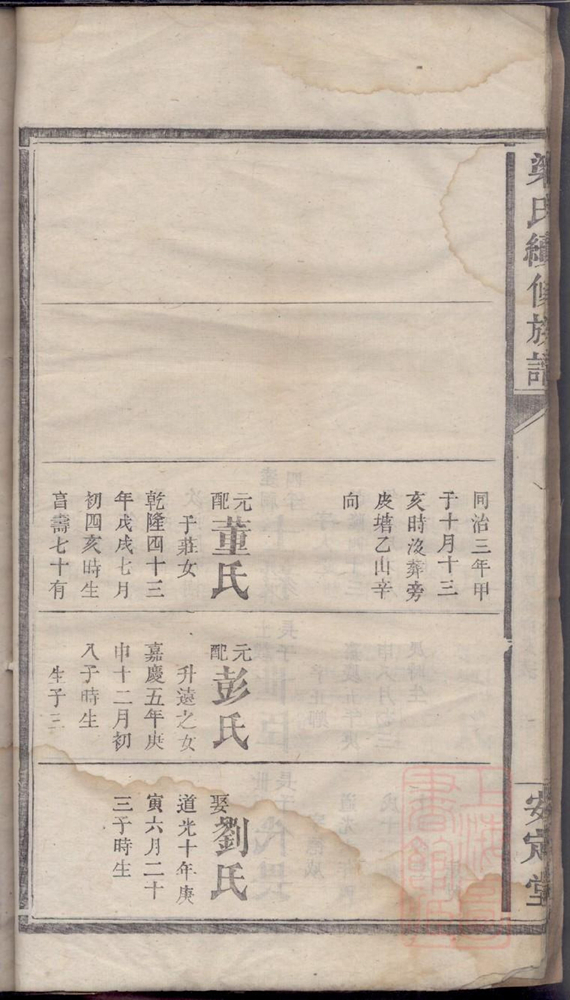 梁氏續修族譜
安定堂
同治三年甲
于十月十三
亥時沒葬旁
皮塘乙山辛
向
元配董氏
于莊女
乾隆四十三
年戊戌七月
初四亥時生
享壽七十有
元配彭氏
升遠之女
嘉慶五年庚
申十二月初
八子時生
生子三
娶劉氏
道光十年庚
寅六月二十
三子時生